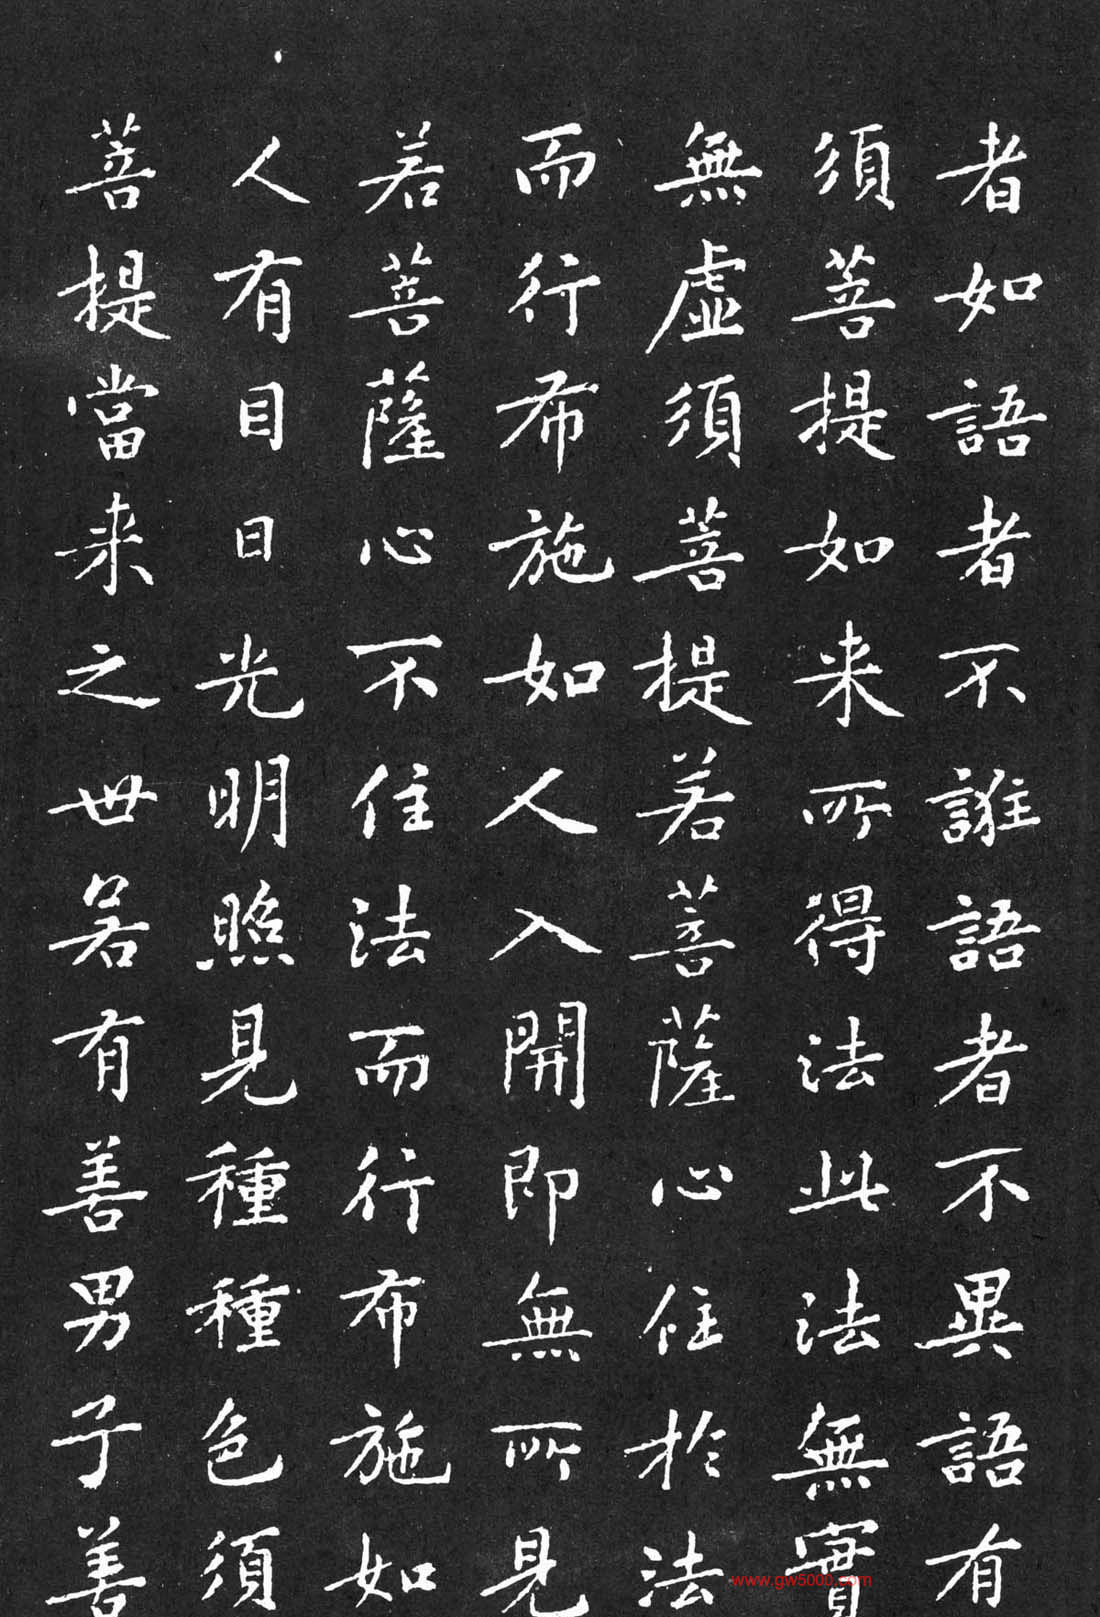 者如語者不誑語者不異語有
須菩提如来所得法此法無實
無虛須菩提若菩薩心住於法
而行布施如人入開即無所見
若菩薩心不住法而行布施如
人有目日光明照見種種色須
菩提當来之世若有善男子善
www.gw5000.com